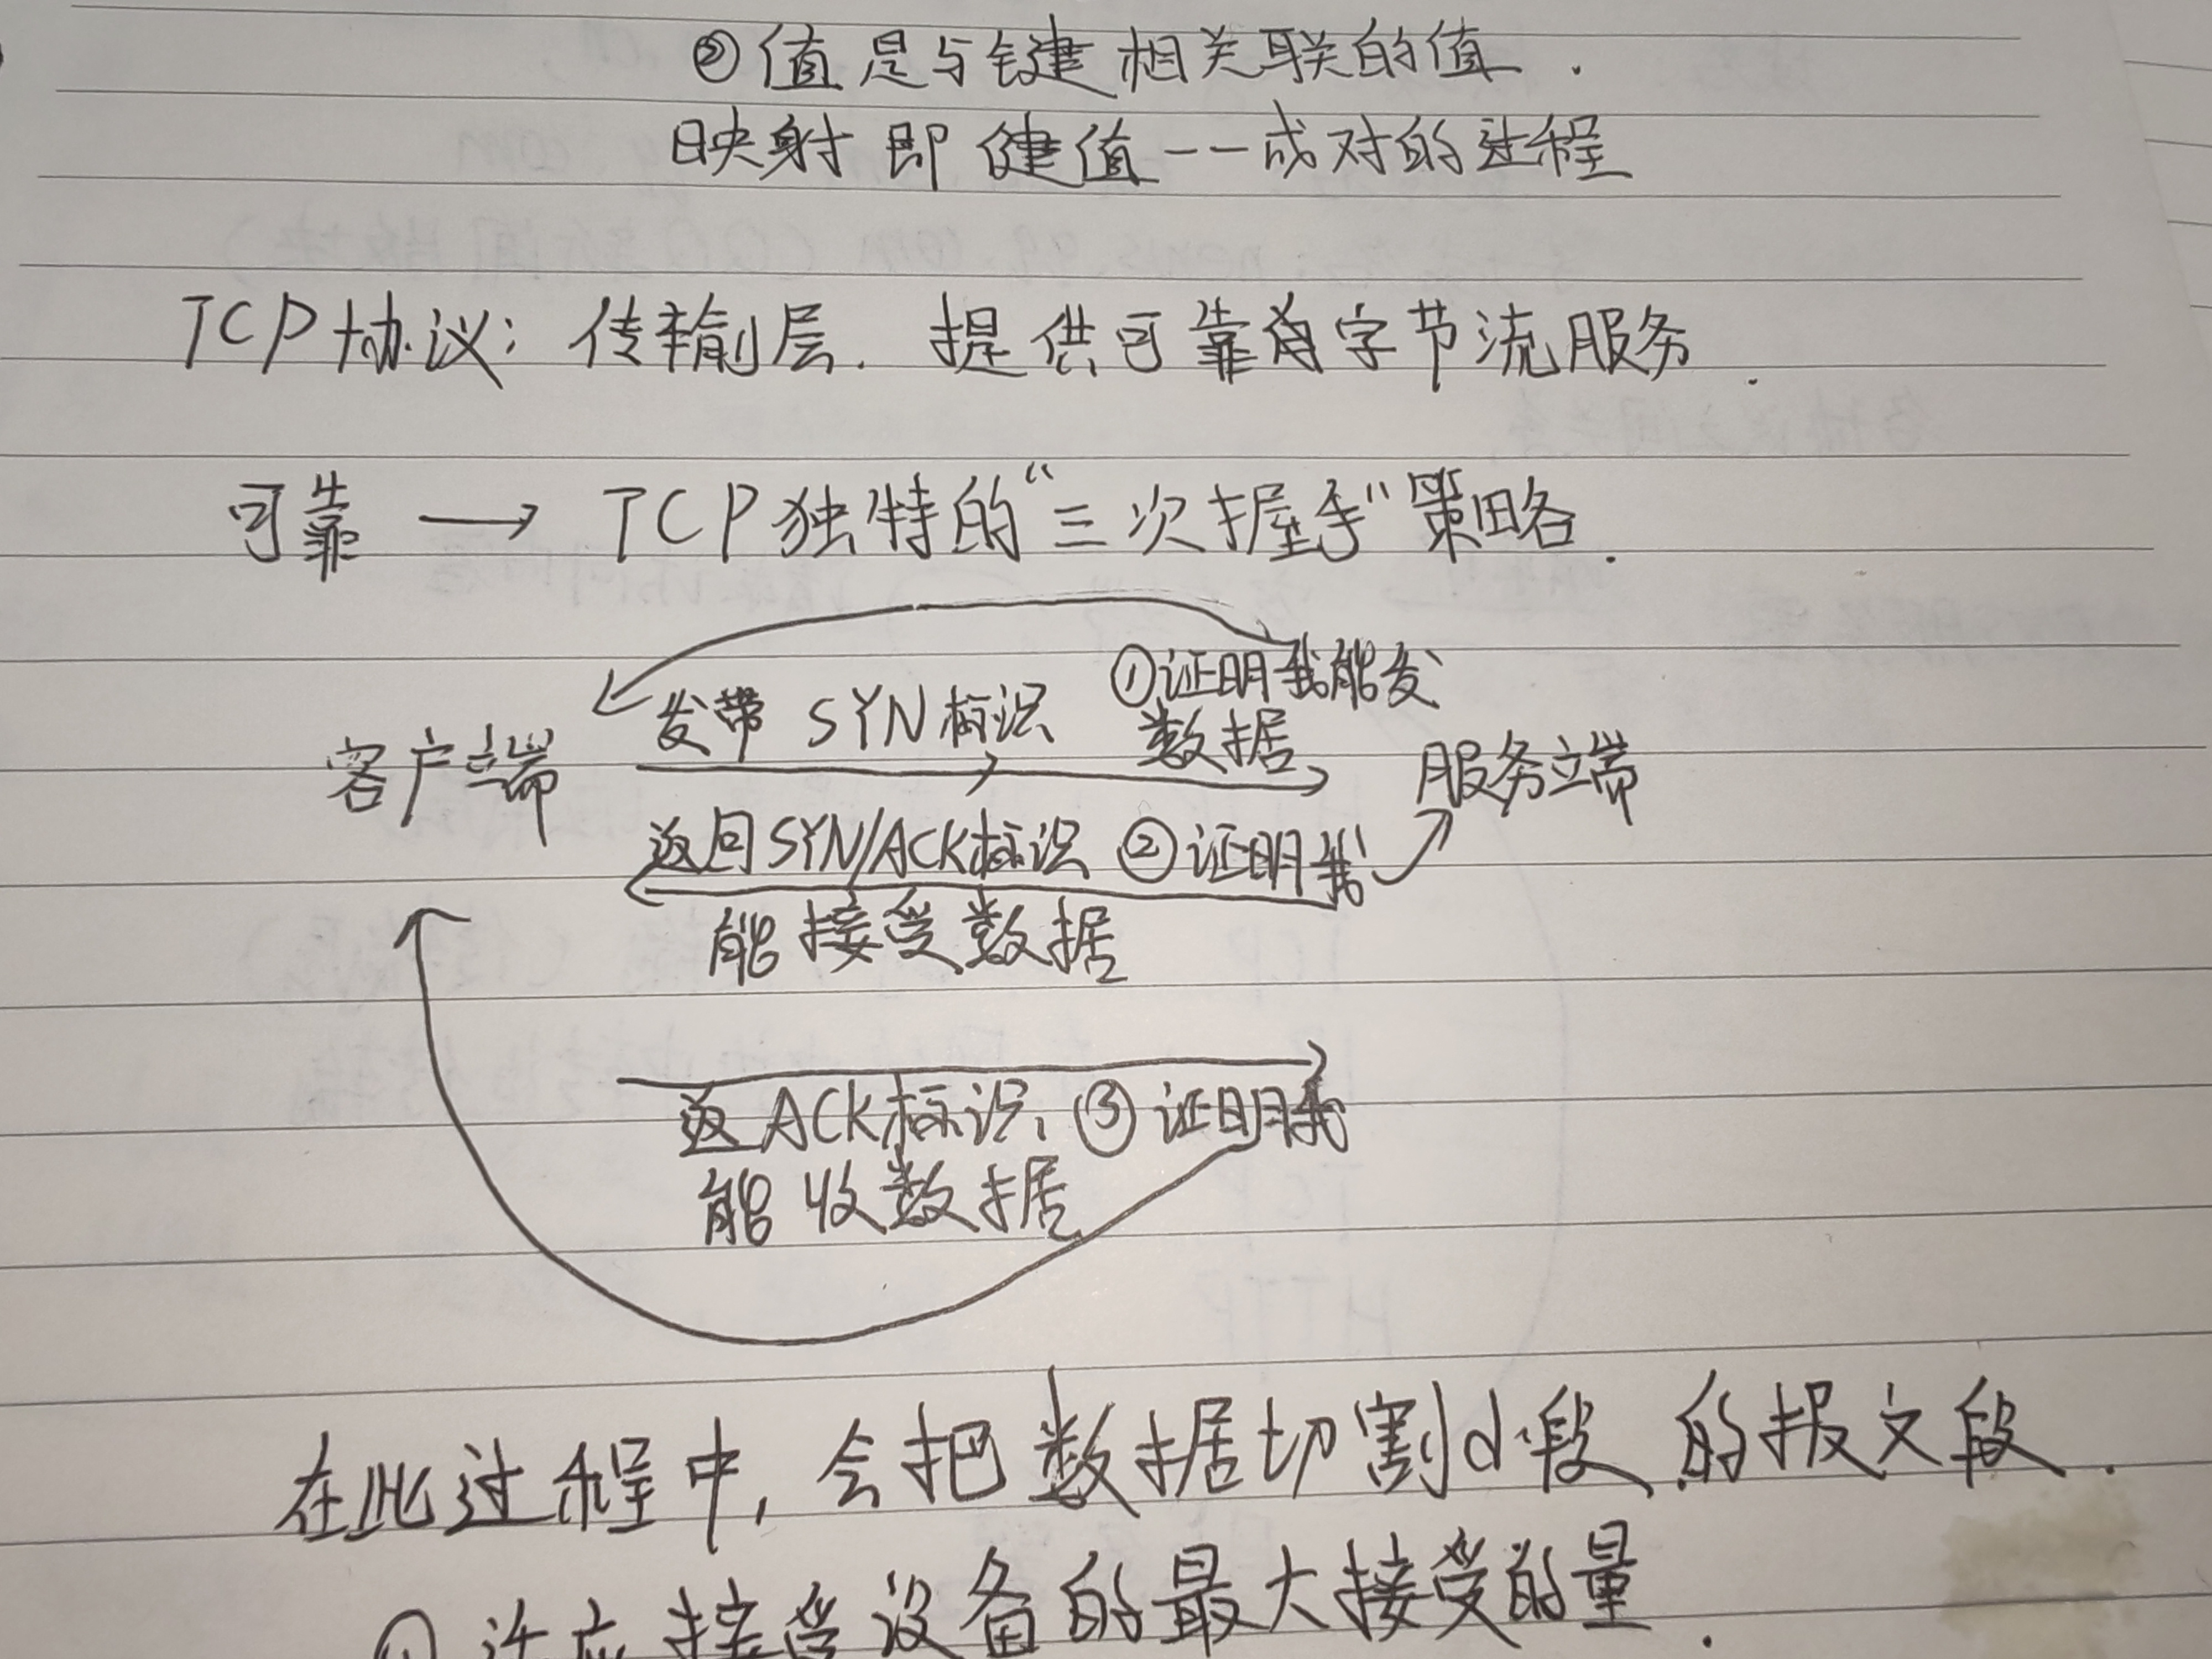 ②值是与键相关联的值.
映射即健值一一成对的过程
TCP协议：传输层. 提供可靠的字节流服务.
可靠 → TCP独特的“三次握手”策略.
①证明我能发
发带 SYN标识 数据
客户端 服务端
返回SYN/ACK标识 ②证明我
能接受数据
返ACK标识, ③证明我
能收数据
在此过程中, 会把数据切割小段的报文段.
① 适应接受设备的最大接受的量.